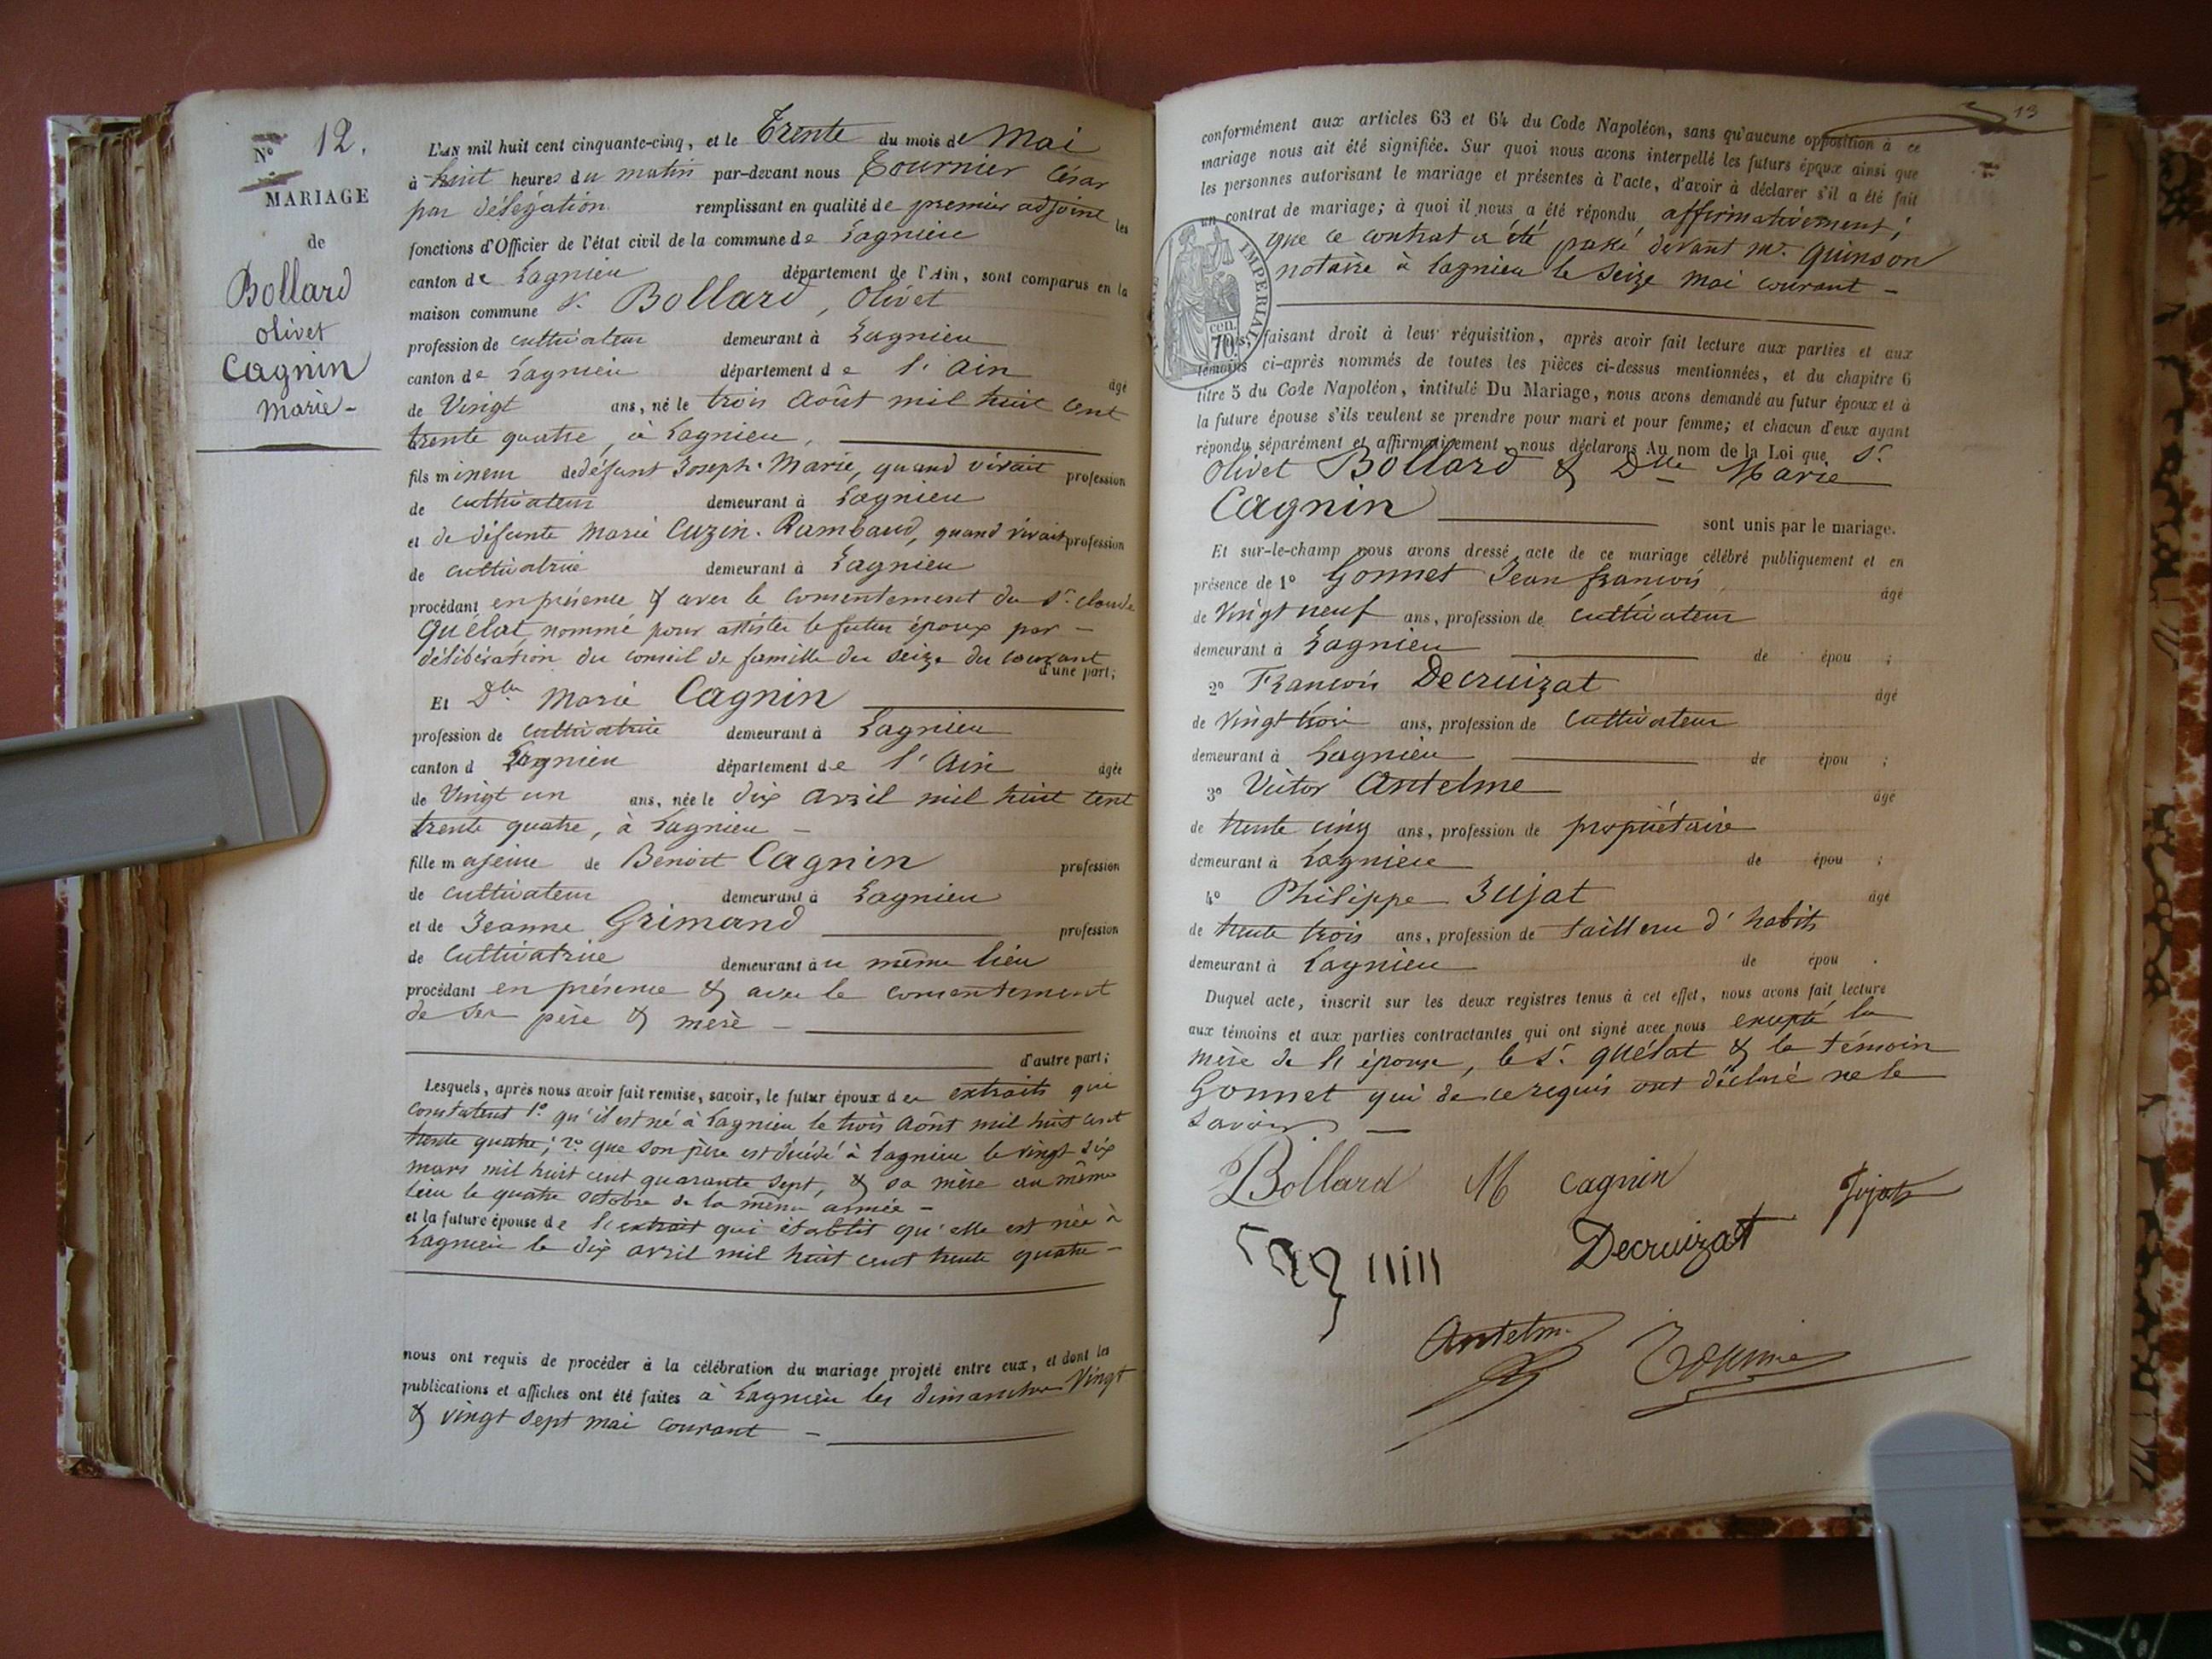 N° 12.
MARIAGE
de
Bollard
olivet
Cagnin
Marie -
L'AN mil huit cent cinquante-cinq, et le Trente du mois de Mai
à huit heures du matin par-devant nous Tournier César
par délégation remplissant en qualité de premier adjoint les
fonctions d'Officier de l'état civil de la commune de Lagnieu
canton de Lagnieu département de l'Ain, sont comparus en la
maison commune Sr. Bollard, Olivet
profession de cultivateur demeurant à Lagnieu
canton de Lagnieu département de l'Ain âgé
de Vingt ans, né le trois Août mil huit cent
trente quatre, à Lagnieu,
fils mineur de défunt Joseph-Marie, quand vivait profession
de cultivateur demeurant à Lagnieu
et de défunte Marie Cuzin-Rambaud, quand vivait profession
de cultivatrice demeurant à Lagnieu
procédant en présence & avec le consentement du Sr. claude
Quélat, nommé pour assister le futur époux par -
délibération du conseil de famille du seize du courant
d'une part;
Et Dlle Marie Cagnin
profession de cultivatrice demeurant à Lagnieu
canton d Lagnieu département de l'Ain âgée
de Vingt un ans, née le dix avril mil huit cent
trente quatre, à Lagnieu -
fille majeure de Benoit Cagnin profession
de cultivateur demeurant à Lagnieu
et de Jeanne Grimand profession
de Cultivatrice demeurant au même lieu
procédant en présence & avec le consentement
de ses père & mère -
d'autre part;
Lesquels, après nous avoir fait remise, savoir, le futur époux des extraits qui
constatent 1° qu'il est né à Lagnieu le trois Août mil huit cent
trente quatre; 2° que son père est décédé à Lagnieu le vingt six
mars mil huit cent quarante sept, & sa mère au même
lieu le quatre octobre de la même année -
et la future épouse de l'extrait qui établit qu'elle est née à
Lagnieu le dix avril mil huit cent trente quatre -
nous ont requis de procéder à la célébration du mariage projeté entre eux, et dont les
publications et affiches ont été faites à Lagnieu les dimanches Vingt
& vingt sept mai courant -
13
conformément aux articles 63 et 64 du Code Napoléon, sans qu'aucune opposition à ce
mariage nous ait été signifiée. Sur quoi nous avons interpellé les futurs époux ainsi que
les personnes autorisant le mariage et présentes à l'acte, d'avoir à déclarer s'il a été fait
un contrat de mariage; à quoi il nous a été répondu affirmativement;
que ce contrat a été passé devant Me. Quinson
notaire à Lagnieu le seize mai courant -
IMPERIAL
70 cen.
faisant droit à leur réquisition, après avoir fait lecture aux parties et aux
témoins ci-après nommés de toutes les pièces ci-dessus mentionnées, et du chapitre 6
titre 5 du Code Napoléon, intitulé Du Mariage, nous avons demandé au futur époux et à
la future épouse s'ils veulent se prendre pour mari et pour femme; et chacun d'eux ayant
répondu séparément et affirmativement nous déclarons Au nom de la Loi que Sr.
Olivet Bollard & Dlle Marie
Cagnin sont unis par le mariage.
Et sur-le-champ nous avons dressé acte de ce mariage célébré publiquement et en
présence de 1° Gonnet Jean françois, âgé
de Vingt neuf ans, profession de cultivateur
demeurant à Lagnieu de épou ;
2° François Decruizat âgé
de Vingt trois ans, profession de Cultivateur
demeurant à Lagnieu de épou ;
3° Victor Antelme âgé
de trente cinq ans, profession de propriétaire
demeurant à Lagnieu de épou ;
4° Philippe Jujat âgé
de trente trois ans, profession de tailleur d'habits
demeurant à Lagnieu de épou .
Duquel acte, inscrit sur les deux registres tenus à cet effet, nous avons fait lecture
aux témoins et aux parties contractantes qui ont signé avec nous excepté la
mère de l'épouse, le Sr. Quélat & le témoin
Gonnet qui de ce requis ont déclaré ne le
savoir -
Bollard M cagnin Jujat
Decruizat
Antelm